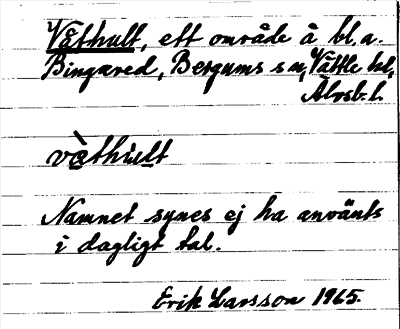 Våthult, ett område å bl.a.
Bingared, Bergums sn, Vättle hd,
Älvsb. l.
våthult
Namnet synes ej ha använts
i dagligt tal.
Erik Larsson 1965.